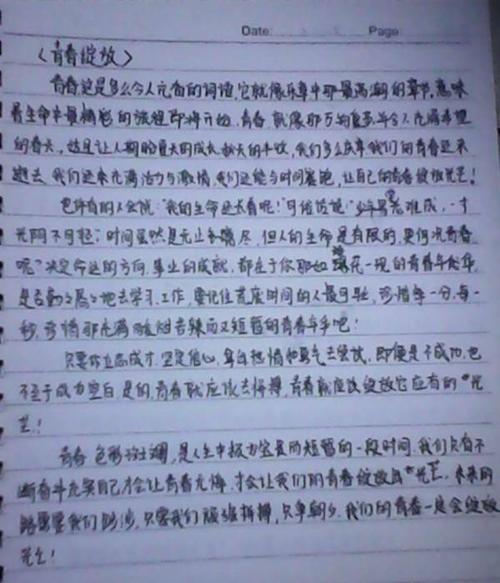 Date: Page:
《青春绽放》
青春这是多么令人充奋的词语,它就像乐章中那最高潮的章节,意味
着生命中最精彩的旅程即将开始.青春就像那万物复苏令人充满希望
的春天,这是让人期盼夏天的成长秋天的丰收,我们多么庆幸我们的青春还未
逝去,我们还未充满活力与激情,我们还能与时间赛跑,让自己的青春绽放光芒!
也许有的人会说:"我的生命还长着呢!"可俗话说:"少年易老难成,一寸
光阴不可轻;时间虽然是无止尽,但人的生命是有限的,更何况青春
呢?"决定命运的方向,事业的成就,都在于你那如昙花一现的青春年华,
是否勤勤地去学习.工作,要记住荒废时间的人最可耻,珍惜每一分,每一
秒,珍惜那充满酸甜苦辣而又短暂的青春年华吧!
只要你立志成才,坚定信心,拿出热情和勇气去绽放,即便是不成功,也
不至于成为空白,是的,青春就应该去拼搏,青春就应该绽放它应有的"光
芒!
青春色彩斑斓,是人生中极为宝贵而短暂的一段时间.我们只有不
断奋斗充实自己才会让青春无悔.才会让我们的青春绽放出"光芒.未来的
路需要我们跋涉,只要我们顽强拼搏,只争朝夕,我们的青春一定会绽放
光芒!